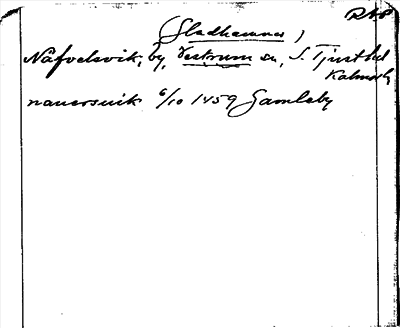 RAP
(Gladhammar)
Näfvelsvik, by, Vestrum sn, S. Tjust hd
Kalmar l
nauersuik 6/10 1459 Gamleby